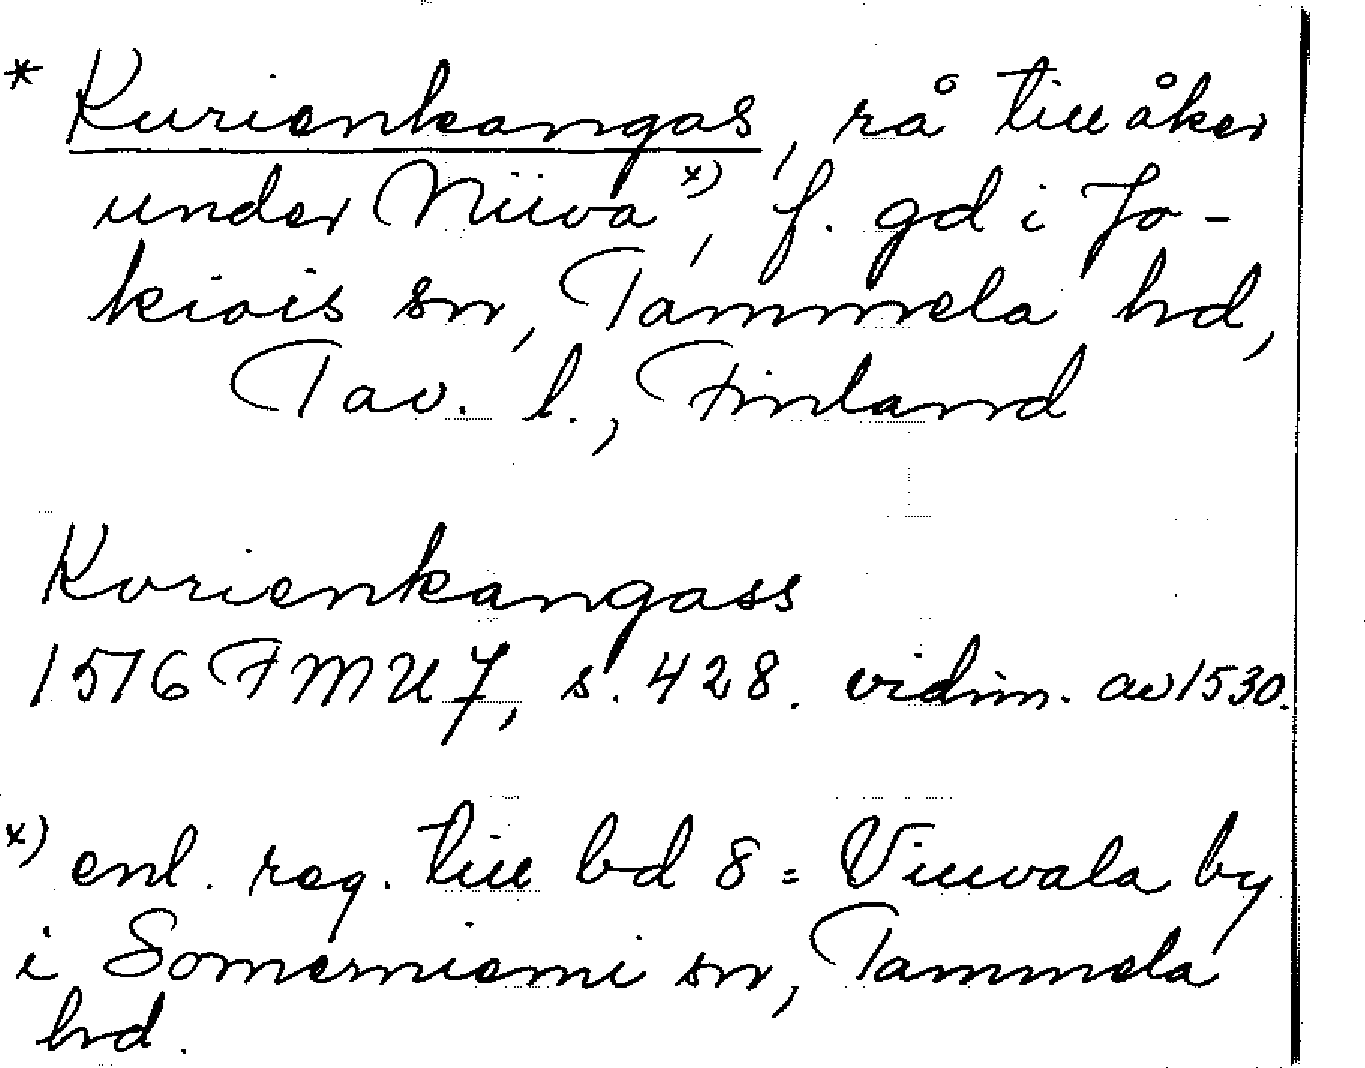 * Kurienkangas, rå till åker
under Niiva x), f. gd i Jo-
kiois sn, Tammela hd,
Tav. l., Finland
Kvrienkangass
1516 FMU 7, s. 428. vidim. av 1530.
x) enl. reg. till bd 8 = Viuvala by
i Somerniemi sn, Tammela
hd.